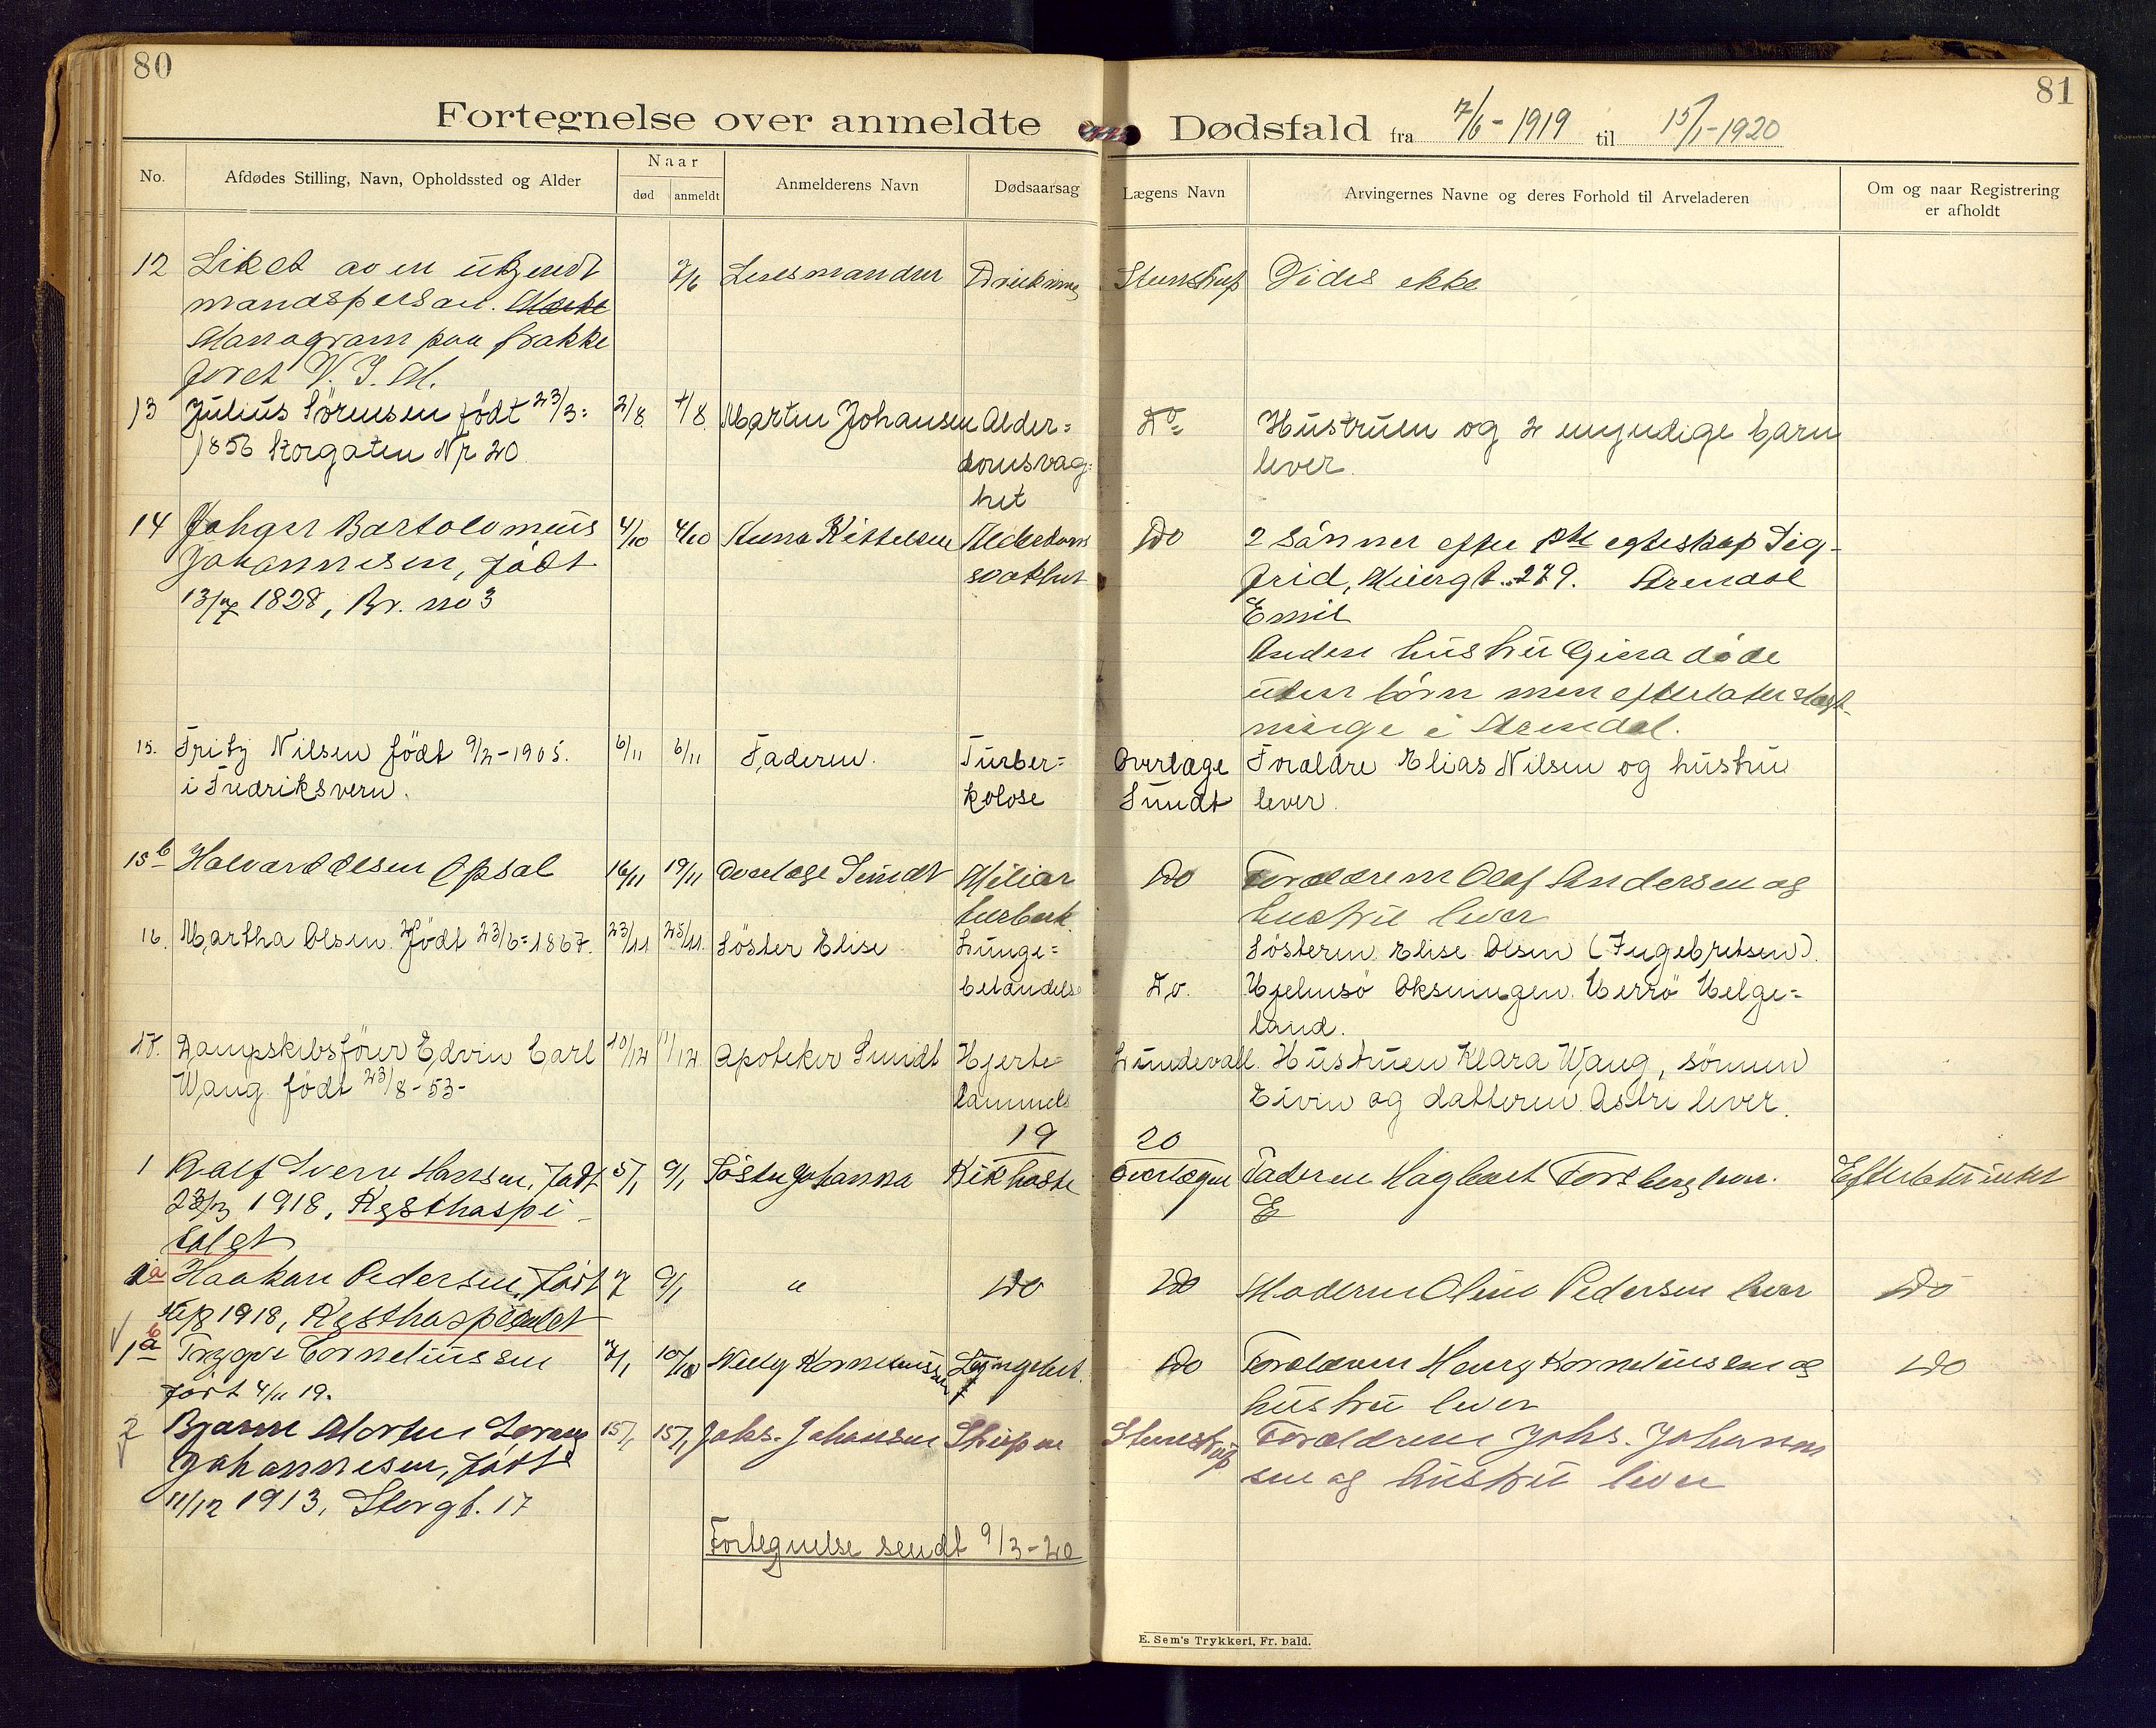 80
81
Fortegnelse over anmeldte Dødsfald fra 7/6-1919 til 15/1-1920
No.
Afdødes Stilling, Navn, Opholdssted og Alder
Naar
død
anmeldt
Anmelderens Navn
Dødsaarsag
Lægens Navn
Arvingernes Navne og deres Forhold til Arveladeren
Om og naar Registrering
er afholdt
12 Liket av en ukjendt 7/6 Lensmanden Drukning Stenstrup Vides ikke
mandsperson. Merke
Monogram paa frakke
foret V. J. M.
13 Julius Sørensen født 23/3= 2/8 4/8 Martin Johansen Alder= Do Hustruen og 2 umyndige barn
1856 Storgaten Nr 20 domsvag= lever.
het
14 Johan Bartolomeus 4/10 4/10 Anna Kittelsen Alderdoms Do 2 sønner efter egteskap Sig-
Johannesen, født svakhet frid, Meiergt. 279. Arendal
13/7 1828, Br. no 3 Emil
Anden hustru Gina døde
uten børn men efterlater slegt-
ninge i Arendal.
15. Fritz Nilsen født 9/2-1905. 6/11 6/11 Faderen. Turber= Overlæge Foraldre Elias Nilsen og hustru
i Fredriksvern. kolose Sundt lever.
15b Halvard Olsen Opsal 16/11 19/11 Overlæge Sundt Miliar Do Forældrene Olaf Andersen og
turberk. hustru lever
16. Martha Olsen. Født 23/6=1867. 23/11 25/11. Söster Elise Lunge= Söstern Elise Olsen (Ingebretsen).
betændelse Do. Hjelmsö Oksningen. Herrö Helge=
land.
17. Dampskibsförer Edvin Carl 10/12 11/12 Apoteker Sundt Hjerte= Lundevall. Hustruen Klara Wang, sönnen
Wang født 23/8-53- lammels Eivin og datteren Astri lever.
19 20
1 Ralf Sverre Hansen, født 5/1 9/1 Söster Johanna Kikhoste Overlægen Faderen Hagbart Forsberg lever. Efterlater intet
23/12 1918, Kysthospi-
talet
1a Haakon Pedersen, født 7 9/1 " Do Do Moderen Oline Pedersen lever Do
1918, Kysthospitalet
1b Trygve Corneliussen 7/1 10/10 Willy Korneliussen Do Forældrene Korneliussen og Do
født 4/11 19. hustru lever
2 Bjarne Morten 15/1 15/1 Johs. Johansen Stenstrup Forældrene Johs. Johannes
Johannesen, født sen og hustru lever
11/12 1913, Storgt. 17
Fortegnelse sendt 9/3-20
E. Sem's Trykkeri, Fr. hald.